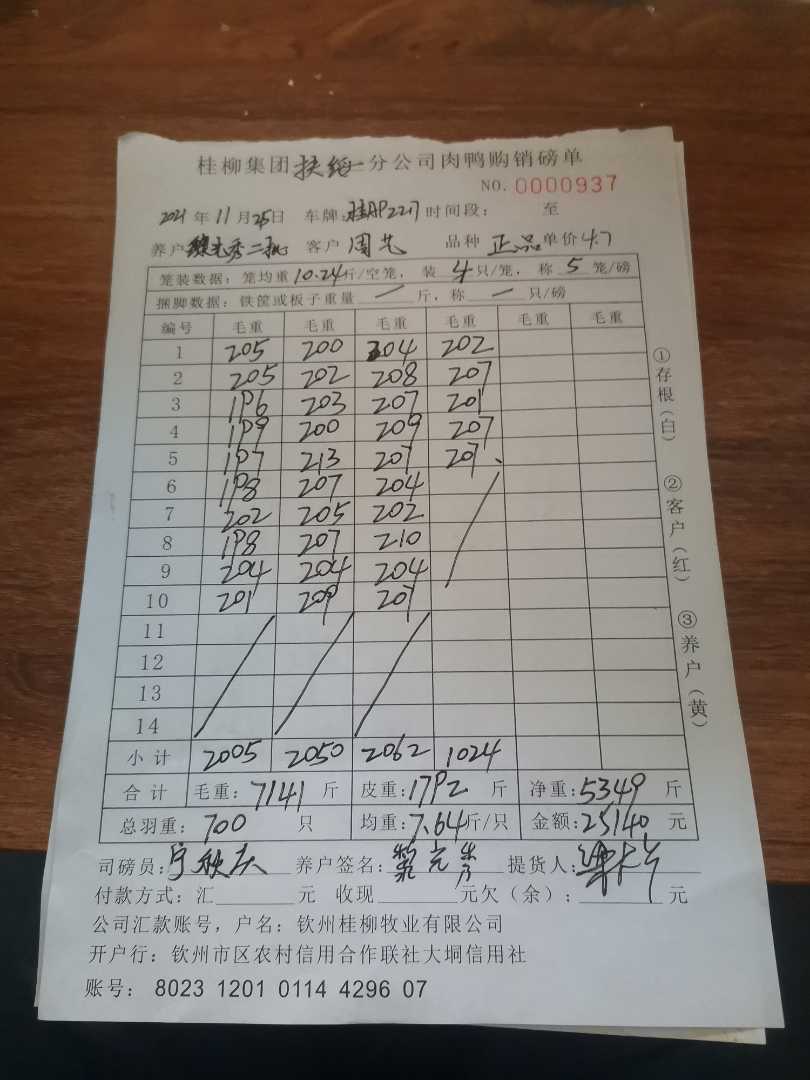 桂柳集团扶绥分公司肉鸭购销磅单
NO. 0000937
2021年11月25日 车牌: 时间段: 至
养户 二批 客户 周芯 品种 正品 单价 4.7
笼装数据: 笼均重10.24斤/空笼, 装4只/笼, 称5笼/磅
捆脚数据: 铁筐或板子重量 / 斤, 称 / 只/磅
编号 毛重 毛重 毛重 毛重 毛重 毛重
1 205 200 204 202
2 205 202 208 207
3 196 203 207 201
4 199 200 209 207
5 197 213 207 207
6 198 207 204
7 202 205 202
8 198 207 210
9 204 204 204
10 201 209 207
11
12
13
14
小计 2005 2050 2062 1024
合计 毛重: 7141 斤 皮重: 1792 斤 净重: 5349 斤
总羽重: 700 只 均重: 7.64斤/只 金额: 25140 元
司磅员: 养户签名: 提货人:
付款方式: 汇 元 收现 元欠(余): 元
公司汇款账号, 户名: 钦州桂柳牧业有限公司
开户行: 钦州市区农村信用合作联社大垌信用社
账号: 8023 1201 0114 4296 07
①存根(白) ②客户(红) ③养户(黄)